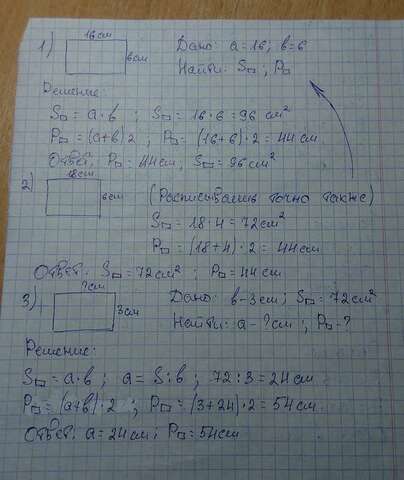 16 см
1) 6 см Дано: a=16; b=6
Найти: S▭; P▭
Решение:
S▭ = a·b; S▭ = 16·6=96 см²
P▭ = (a+b)2; P▭ = (16+6)·2=44 см
Ответ: P▭ = 44 см; S▭ = 96 см²
18 см
2) (Расписывать точно также)
S▭ = 18·4=72 см²
P▭ = (18+4)·2=44 см
Ответ: S▭ = 72 см²; P▭ = 44 см
? см
3) 3 см Дано: b-3 см; S▭ = 72 см²
Найти: a-? см; P▭-?
Решение:
S▭ = a·b; a= S:b; 72:3=24 см
P▭ = (a+b)·2; P▭ = (3+24)·2=54 см
Ответ: a=24 см; P▭ = 54 см